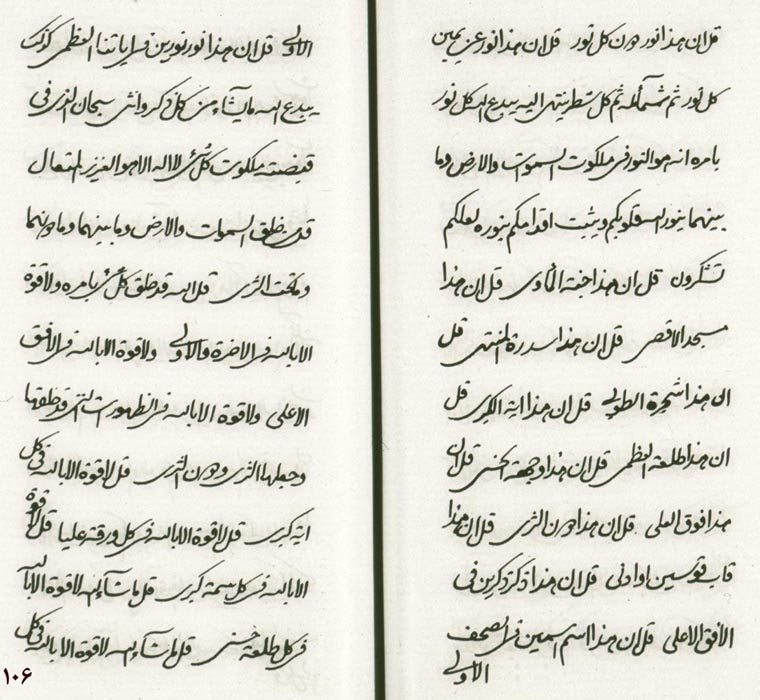 قل ان هذا نور دون كل نور قل ان هذا نور عن يمين
كل نور ثم شمائله ثم كل شطر ينتهي اليه يبدع الله كل نور
بامره انه هو النور في ملكوت السموات والارض وما
بينهما ينور الله قلوبكم ويثبت اقدامكم بنوره لعلكم
تشكرون قل ان هذا جنة الماوى قل ان هذا
مسجد الاقصى قل ان هذا سدرة المنتهى قل
ان هذا شجرة الطوبى قل ان هذا اية الكبرى قل
ان هذا طلعة العظمى قل ان هذا وجهة الحسنى قل ان
هذا فوق العلى قل ان هذا دون الثرى قل ان هذا
قاب قوسين او ادنى قل ان هذا ذكر ذكرين في
الافق الاعلى قل ان هذا اسم اسمين في الصحف
الاولى
الاولى قل ان هذا نور نورين في اياتنا العظمى كذلك
يبدع الله ما يشاء من كل ذكر وانثى سبحان الذي في
قبضته ملكوت كل شيء لا اله الا هو العزيز المتعال
قل من خلق السموات والارض وما بينهما وما دونهما
وما تحت الثرى قل الله قد خلق كل شيء بامره ولا قوة
الا بالله في الاخرة والاولى ولا قوة الا بالله في الافق
الاعلى ولا قوة الا بالله في الظهورات التي قد خلقها
وجعلها الذرى ودون الثرى قل لا قوة الا بالله في كل
اية كبرى قل لا قوة الا بالله في كل ورقة عليا قل لا قوة
الا بالله في كل سمة كبرى قل ما شاء الله لا قوة الا بالله
في كل طلعة حسنى قل ما شاء الله لا قوة الا بالله في كل
١٠٦